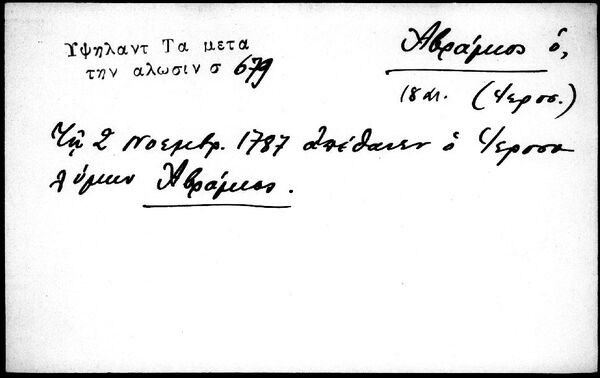 Υψηλαντ Τα μετα
την αλωσιν σ 679
Ἀβράμιος ὁ,
18 αι. (Ἱερος.)
Τῇ 2 Νοεμβρ. 1787 ἀπέθανεν ὁ Ἱεροσο
λύμων Ἀβράμιος.